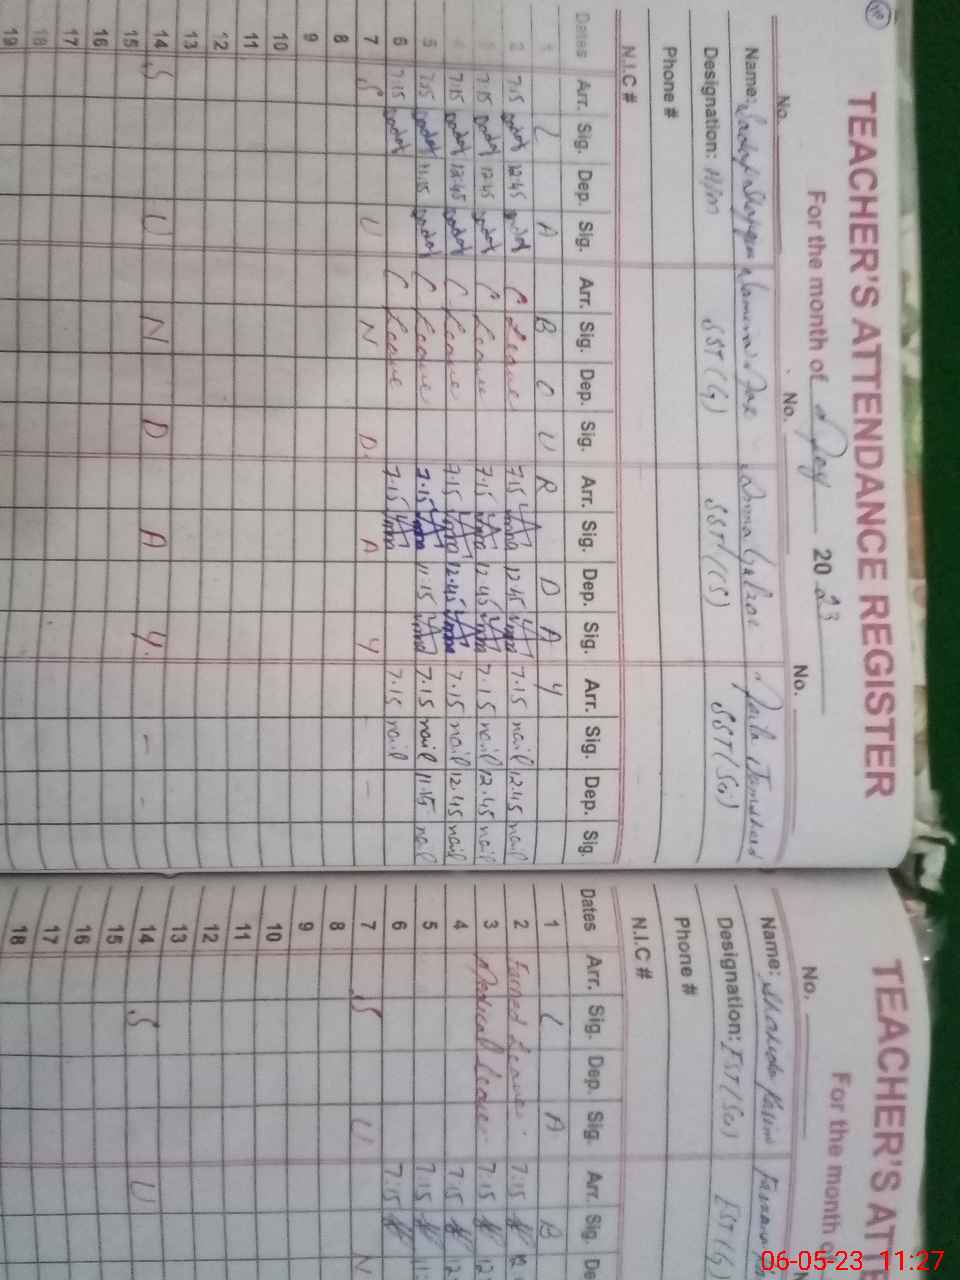 TEACHER'S ATTENDANCE REGISTER
For the month of May 2023
No. No. No.
Name:
Designation: H/m SST (G) SST (CS) SST (Sci)
Phone #
N.I.C #
Dates Arr. Sig. Dep. Sig. Arr. Sig. Dep. Sig. Arr. Sig. Dep. Sig. Arr. Sig. Dep. Sig.
1 L A B O U R D A Y
2 7.15 12.45 C Leave 7.15 12.45 7.15 nail 12.45 nail
3 7.15 12.45 C Leave 7.15 12.45 7.15 nail 12.45 nail
4 7.15 12.45 C Leave 7.15 12.45 7.15 nail 12.45 nail
5 7.15 11.15 C Leave 7.15 11.15 7.15 nail 11.15 nail
6 7.15 C Leave 7.15 7.15 nail
7 S U N D A Y - -
8
9
10
11
12
13
14 S U N D A Y - -
15
16
17
18
19
TEACHER'S ATT
For the month of
No.
Name:
Designation: EST (Sci) EST (G)
Phone #
N.I.C #
Dates Arr. Sig. Dep. Sig. Arr. Sig. De
1 L A B
2 Earned Leave 7.15 12.
3 Medical Leave 7.15 12
4 7.15 12
5 7.15 11
6 7.15
7 S U N
8
9
10
11
12
13
14 S U
15
16
17
18
06-05-23 11:27